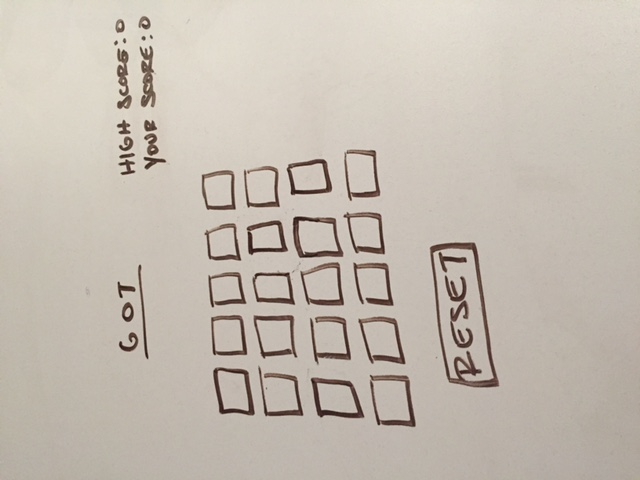 GOT
HIGH SCORE: 0
YOUR SCORE: 0
RESET